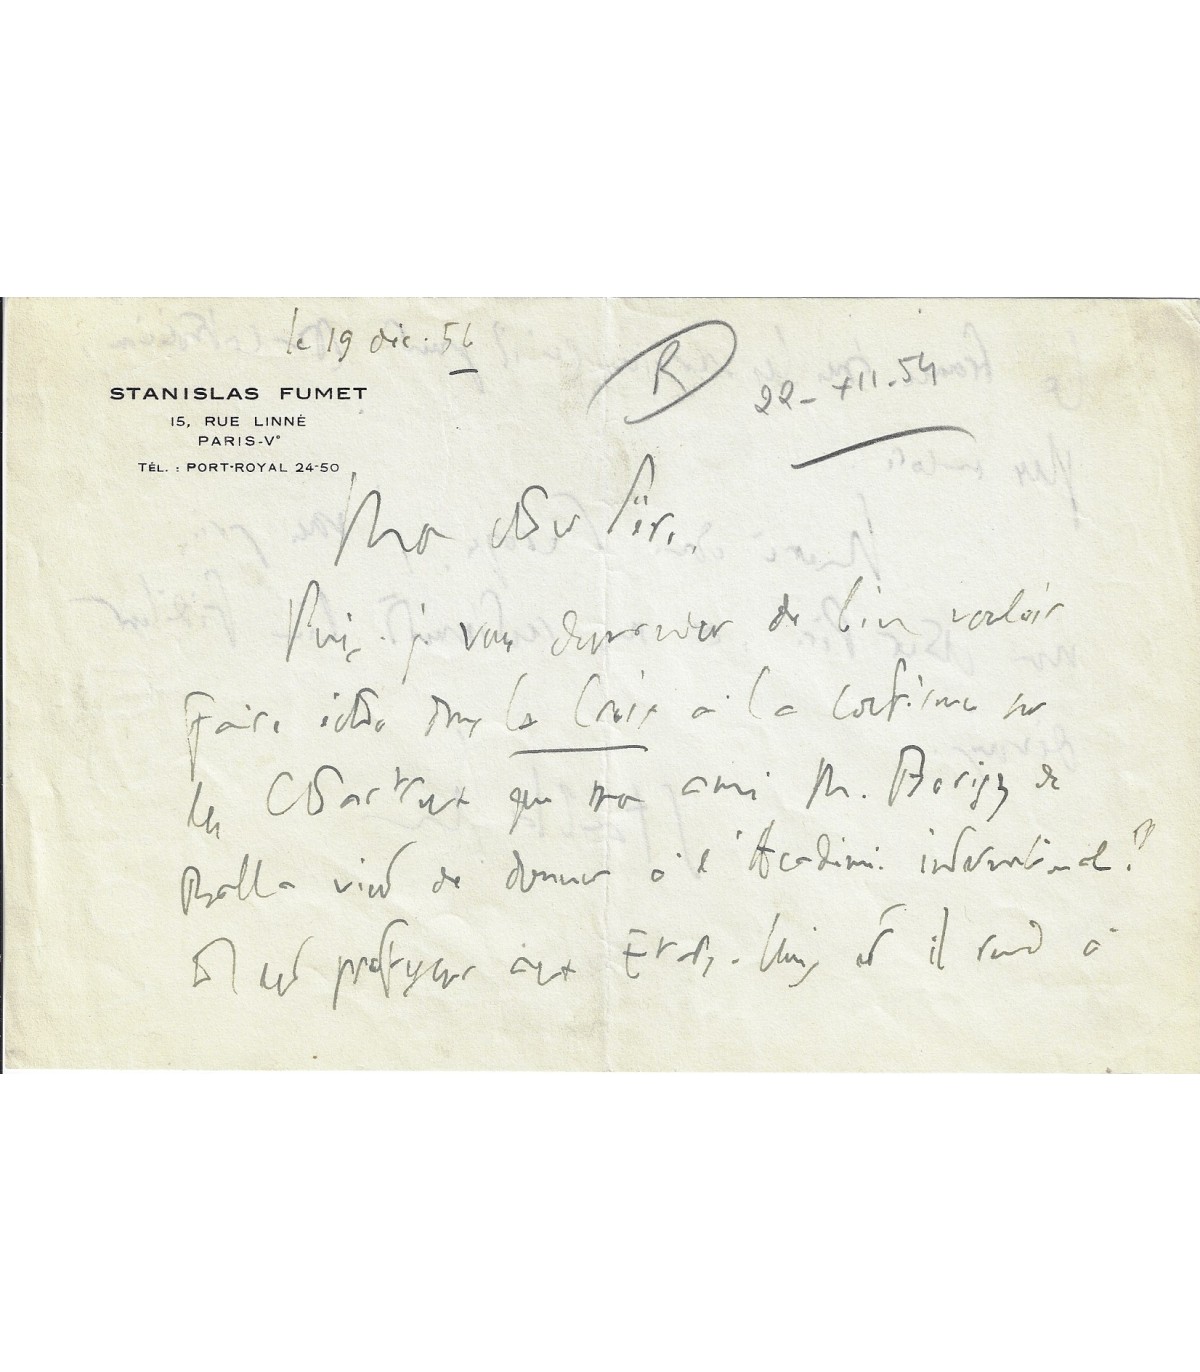 le 19 déc. 54
STANISLAS FUMET
15, RUE LINNÉ
PARIS-V°
TÉL. : PORT-ROYAL 24-50
R
22-XII-54
Mon cher Père,
Puis-je vous demander de bien vouloir
faire écho dans La Croix à la conférence sur
les Chartreux que mon ami M. de
vient de donner à l'Académie internationale?
Il est professeur aux Etats-Unis et il rend à